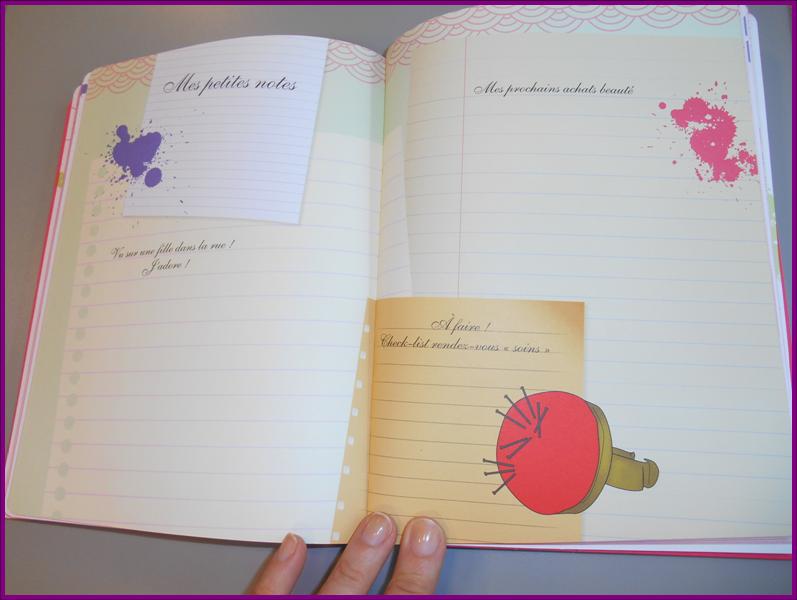 Mes petites notes
Vu sur une fille dans la rue !
J'adore !
Mes prochains achats beauté
À faire !
Check-list rendez-vous « soins »